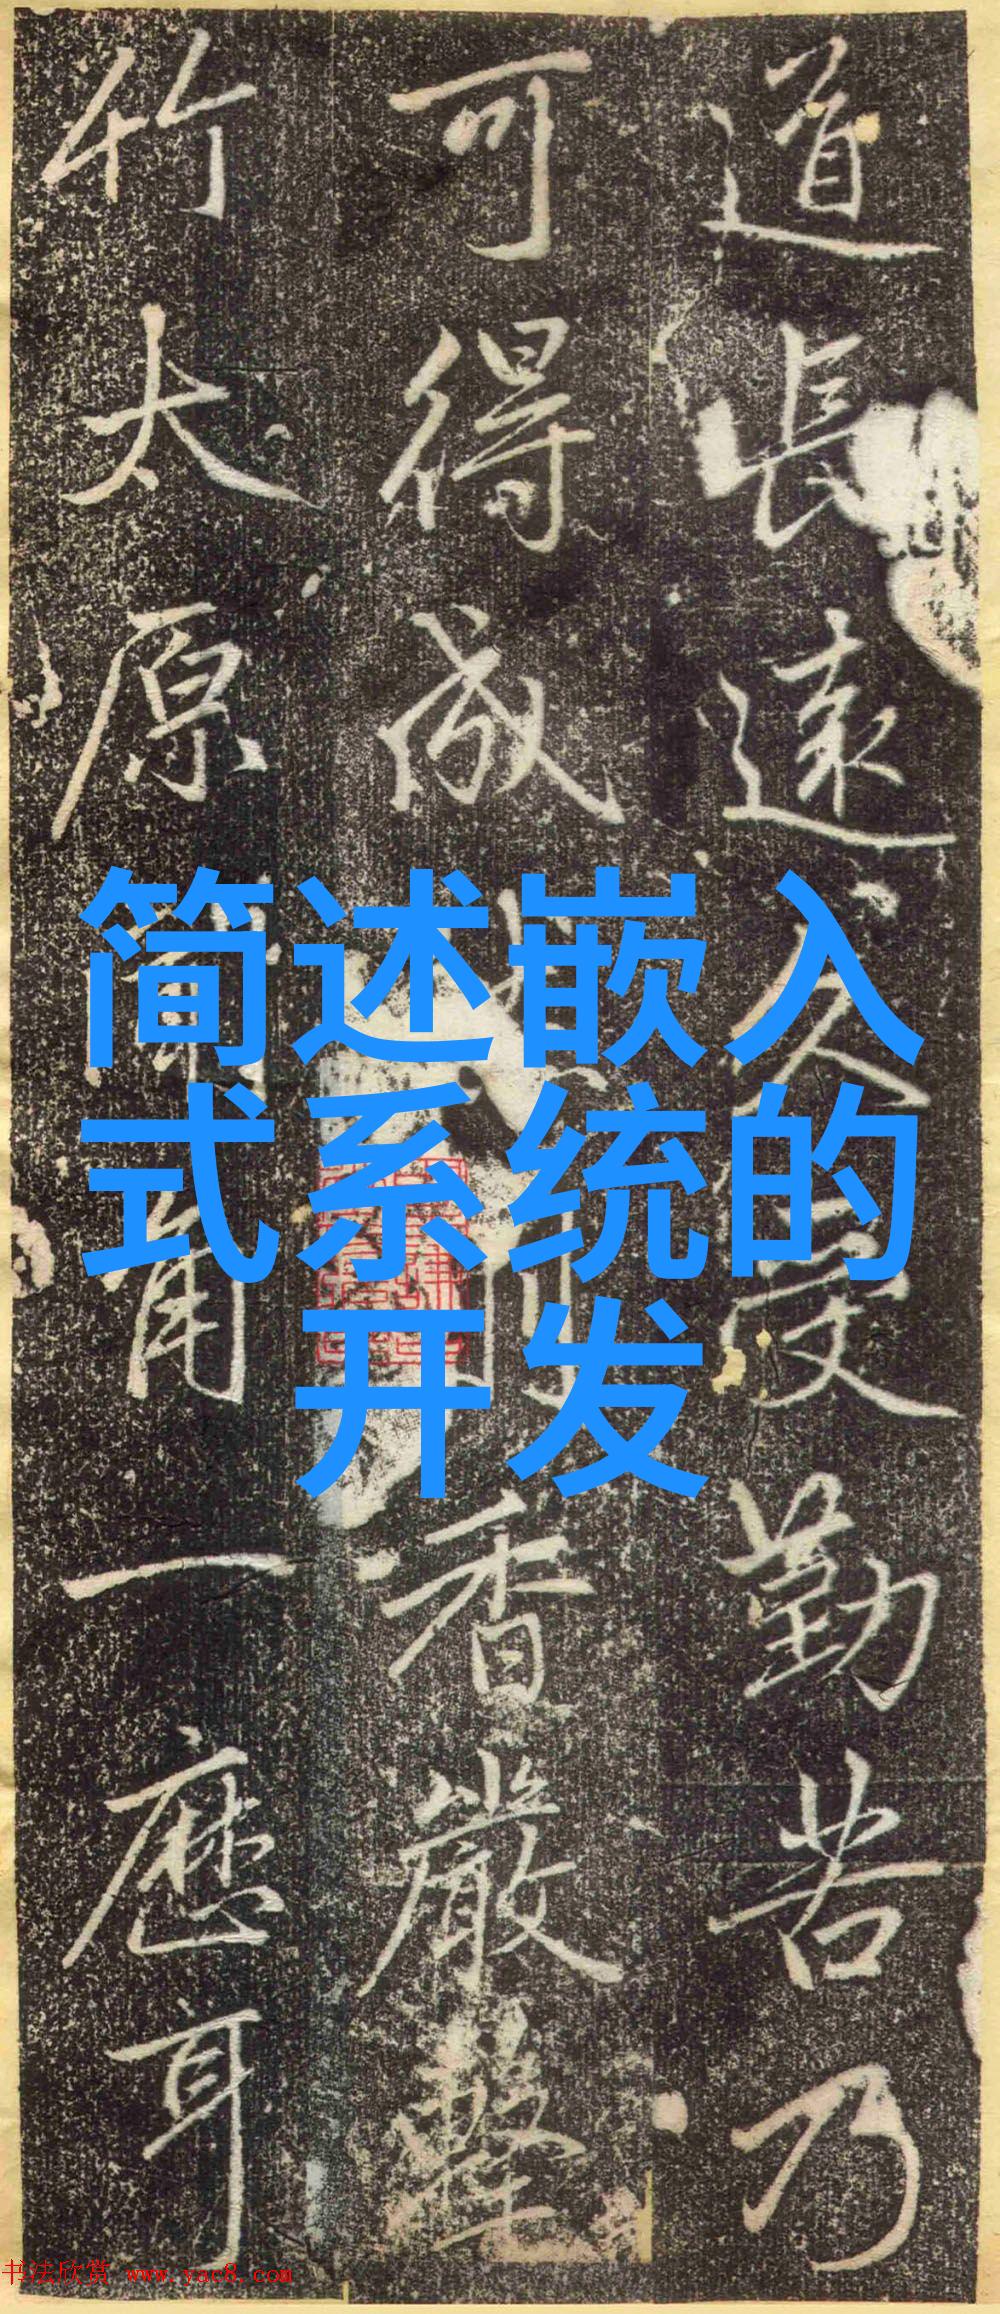 道長遠久受勤苦乃
可得成香嚴擊
竹太原角一應耳
简述嵌入
式系统的
开发
书法欣赏 www.yac8.com